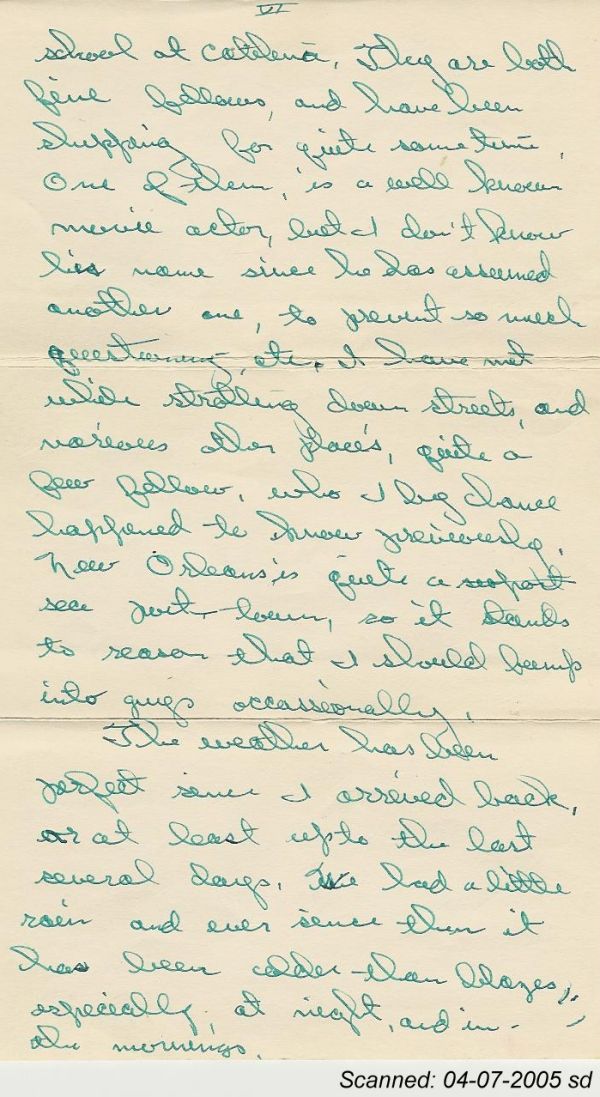 VI
school at Catelena. They are both
fine fellows, and have been
shipping for quite sometime.
One of them, is a well known
movie actor, but I don't know
his name since he has assumed
another one, to prevent so much
questioning, etc. I have met
while strolling down streets, and
various other places, quite a
few fellow, who I by chance
happened to know previously.
New Orleans is quite a seaport
sea port town, so it stands
to reason that I should bump
into guys occassionally.
The weather has been
perfect sence I arrived back,
or at least upto the last
several days. We had a little
rain and ever sence then it
has been colder than blazes,
especially, at night, and in
the mornings.
Scanned: 04-07-2005 sd